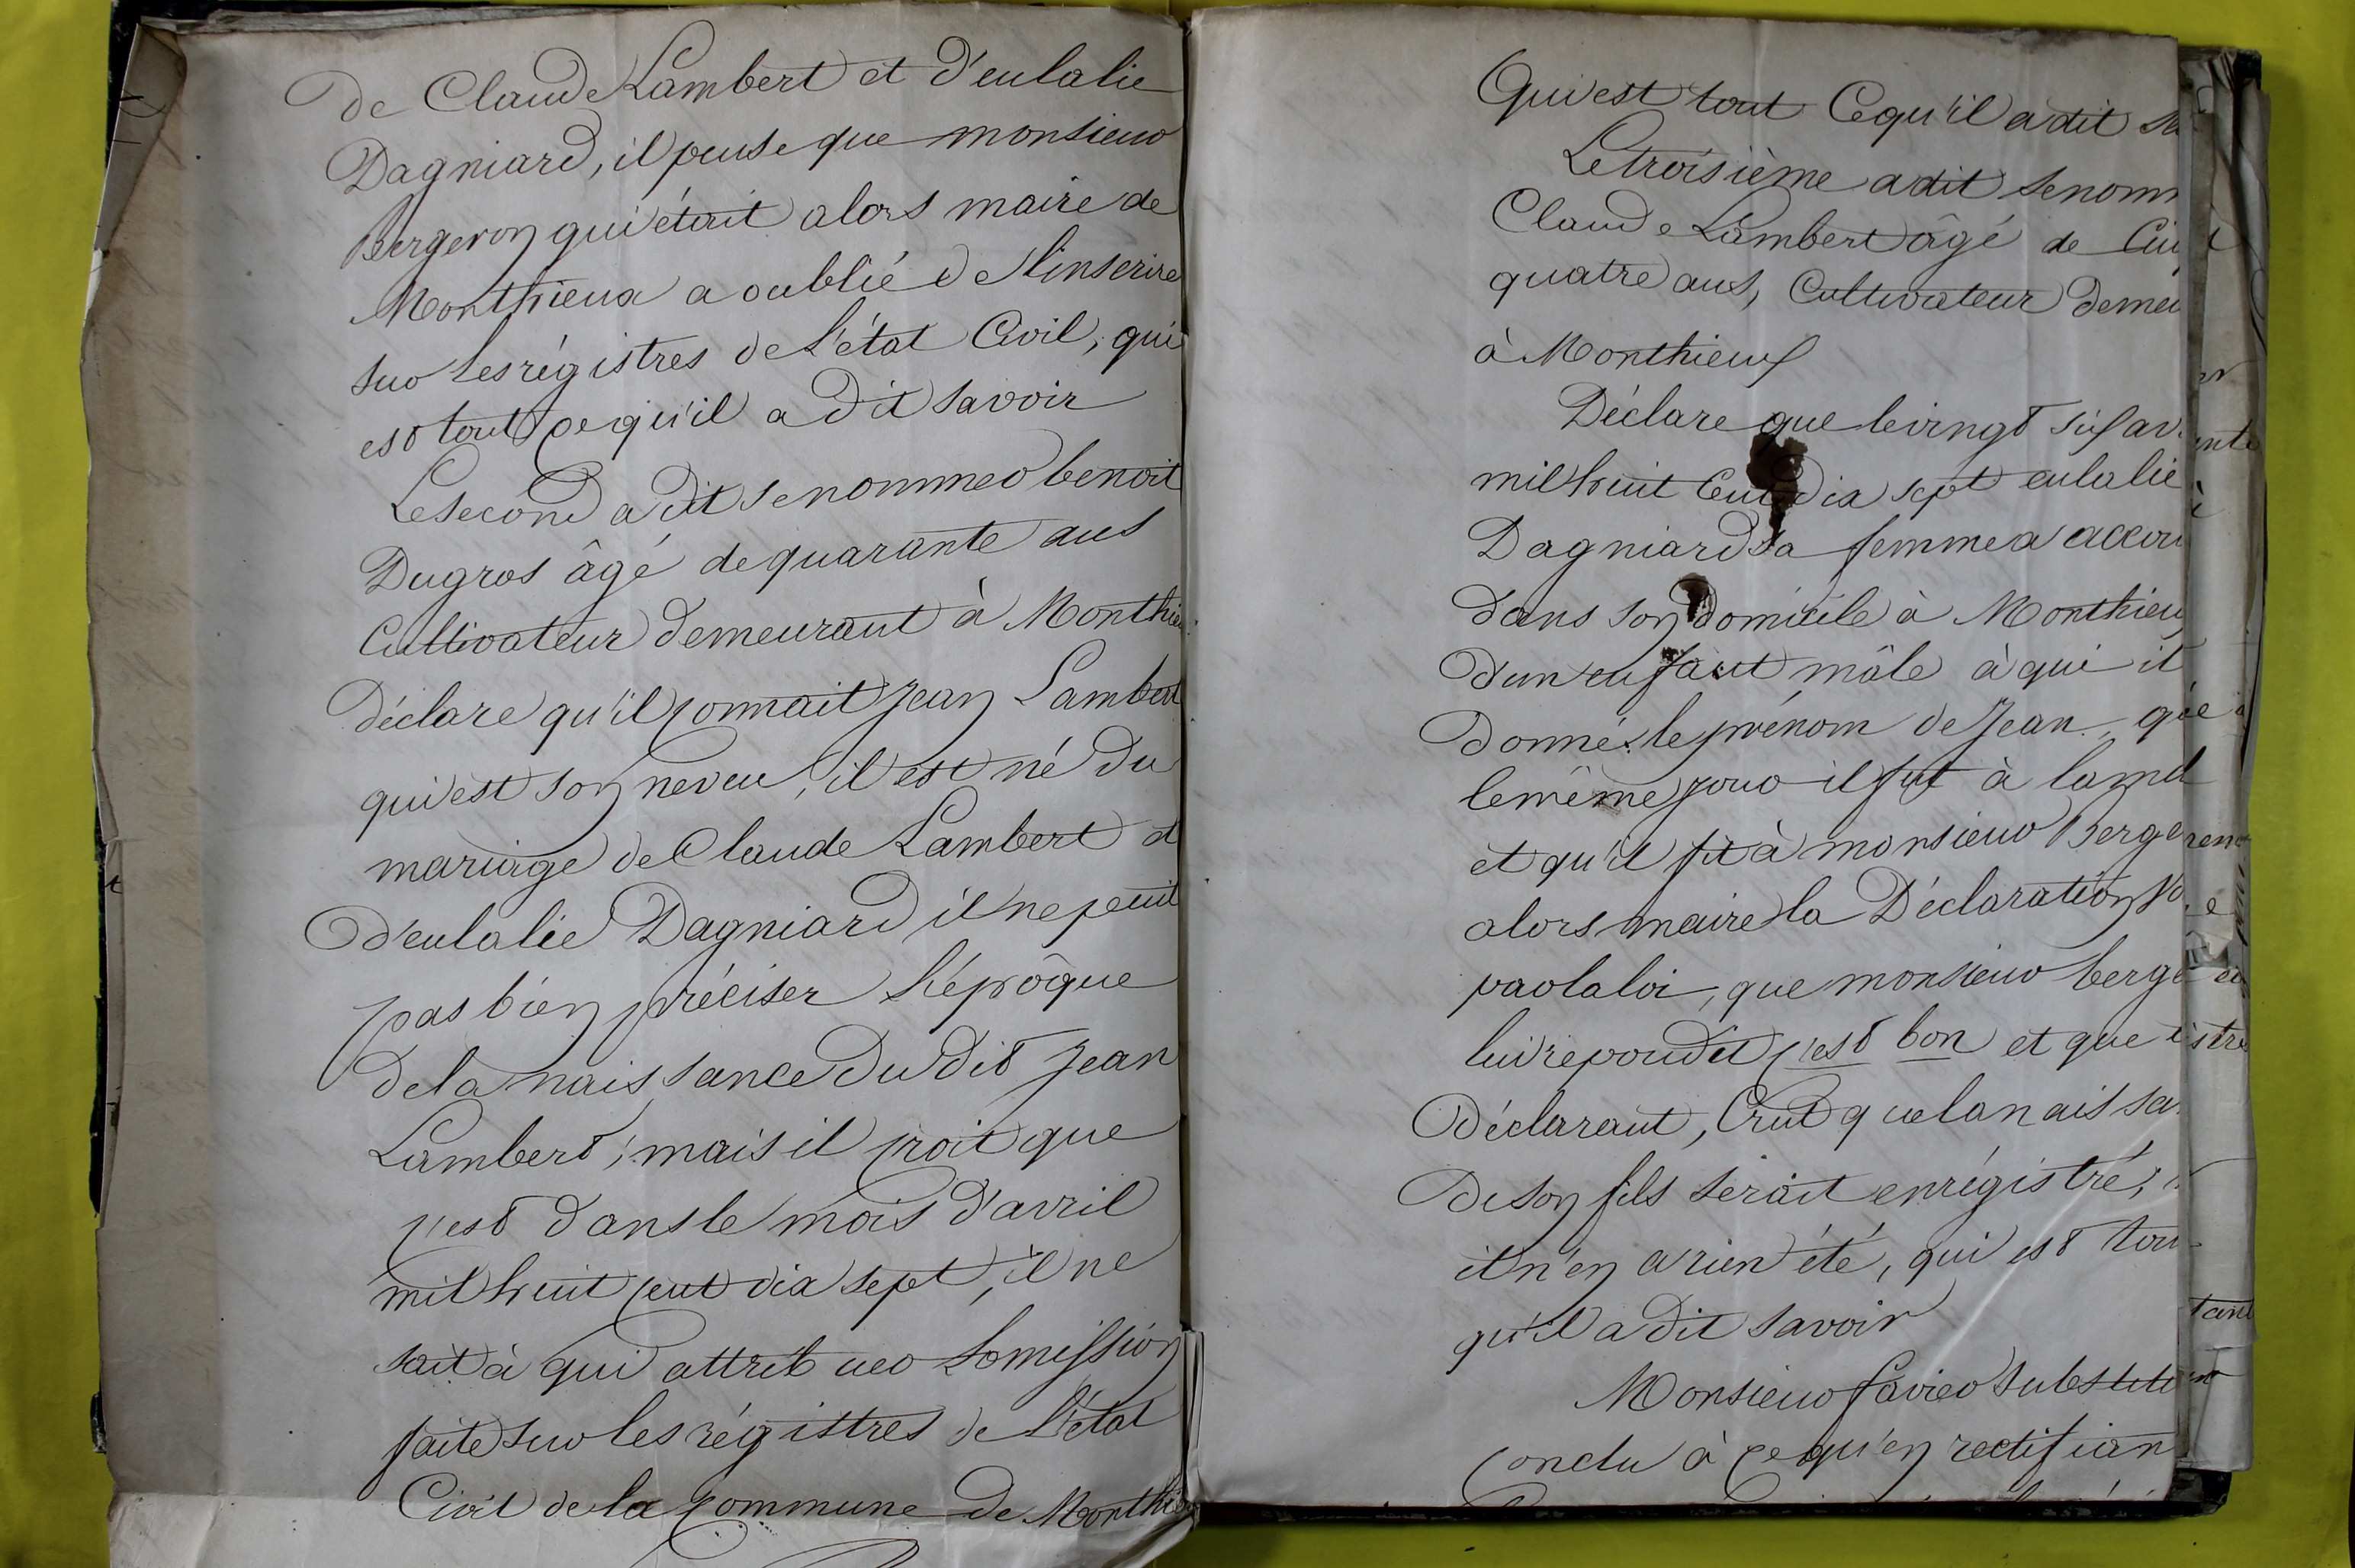 de Claude Lambert et d'eulalie
Dagniard, il pense que monsieur
Bergeron qui était alors maire de
Monthieux a oublié de l'inscrire
sur les régistres de l'état Civil, qui
est tout ce qu'il a dit savoir
Le second a dit se nommer benoit
Dugros âgé de quarante ans
Cultivateur demeurant à Monthie
déclare qu'il connait Jean Lambert
qui est son neveu, il est né du
mariage de Claude Lambert et
d'eulalie Dagniard il ne peut
pas bien préciser l'épôque
de la naissance du dit Jean
Lambert; mais il croit que
c'est dans le mois d'avril
mil huit cent dix sept, il ne
sait à qui attribuer l'omission
faite sur les régistres de l'état
Civil de la commune de Monthieu
Qui est tout Ce qu'il a dit sa
Le troisième a dit se nomm
Claude Lambert âgé de Cin
quatre ans, Cultivateur demeu
à Monthieux
Déclare que le vingt six av
mil huit Cent dix sept eulalie
Dagniard sa femme a accou
dans son domicile à Monthieu
d'un enfant mâle à qui il
donné le prénom de Jean, que
le même jour il fut à la
et qu'il fit à monsieur Berge
alors maire la Déclaration
par la loi, que monsieur berge
lui repondit c'est bon et que
Déclarant, Crut que la naissa
de son fils serait enrégistré,
il n'en a rien été, qui est tou
qu'il a dit savoir
Monsieur favier Substitu
conclu à ce qu'en rectifian